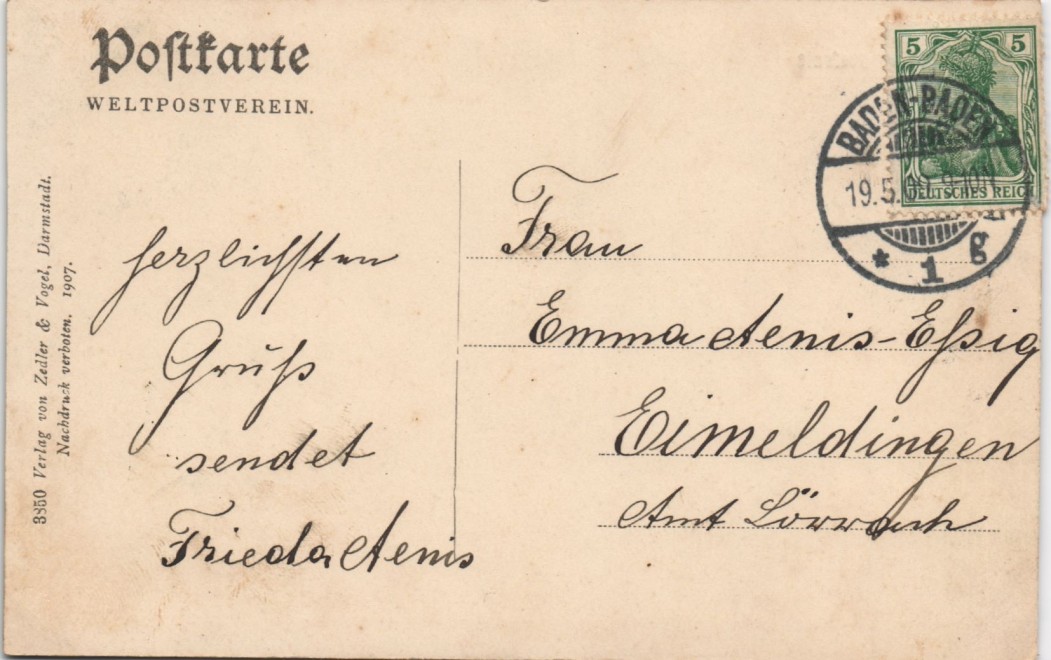 Postkarte
WELTPOSTVEREIN.
5 5
DEUTSCHES REICH
BADEN-BADEN
19.5. 9-10N
* 1 g
3850 Verlag von Zedler & Vogel, Darmstadt.
Nachdruck verboten. 1907.
herzlichsten
Gruß
sendet
Frieda Aenis
Frau
Emma Aenis-Eßig
Eimeldingen
Amt Lörrach